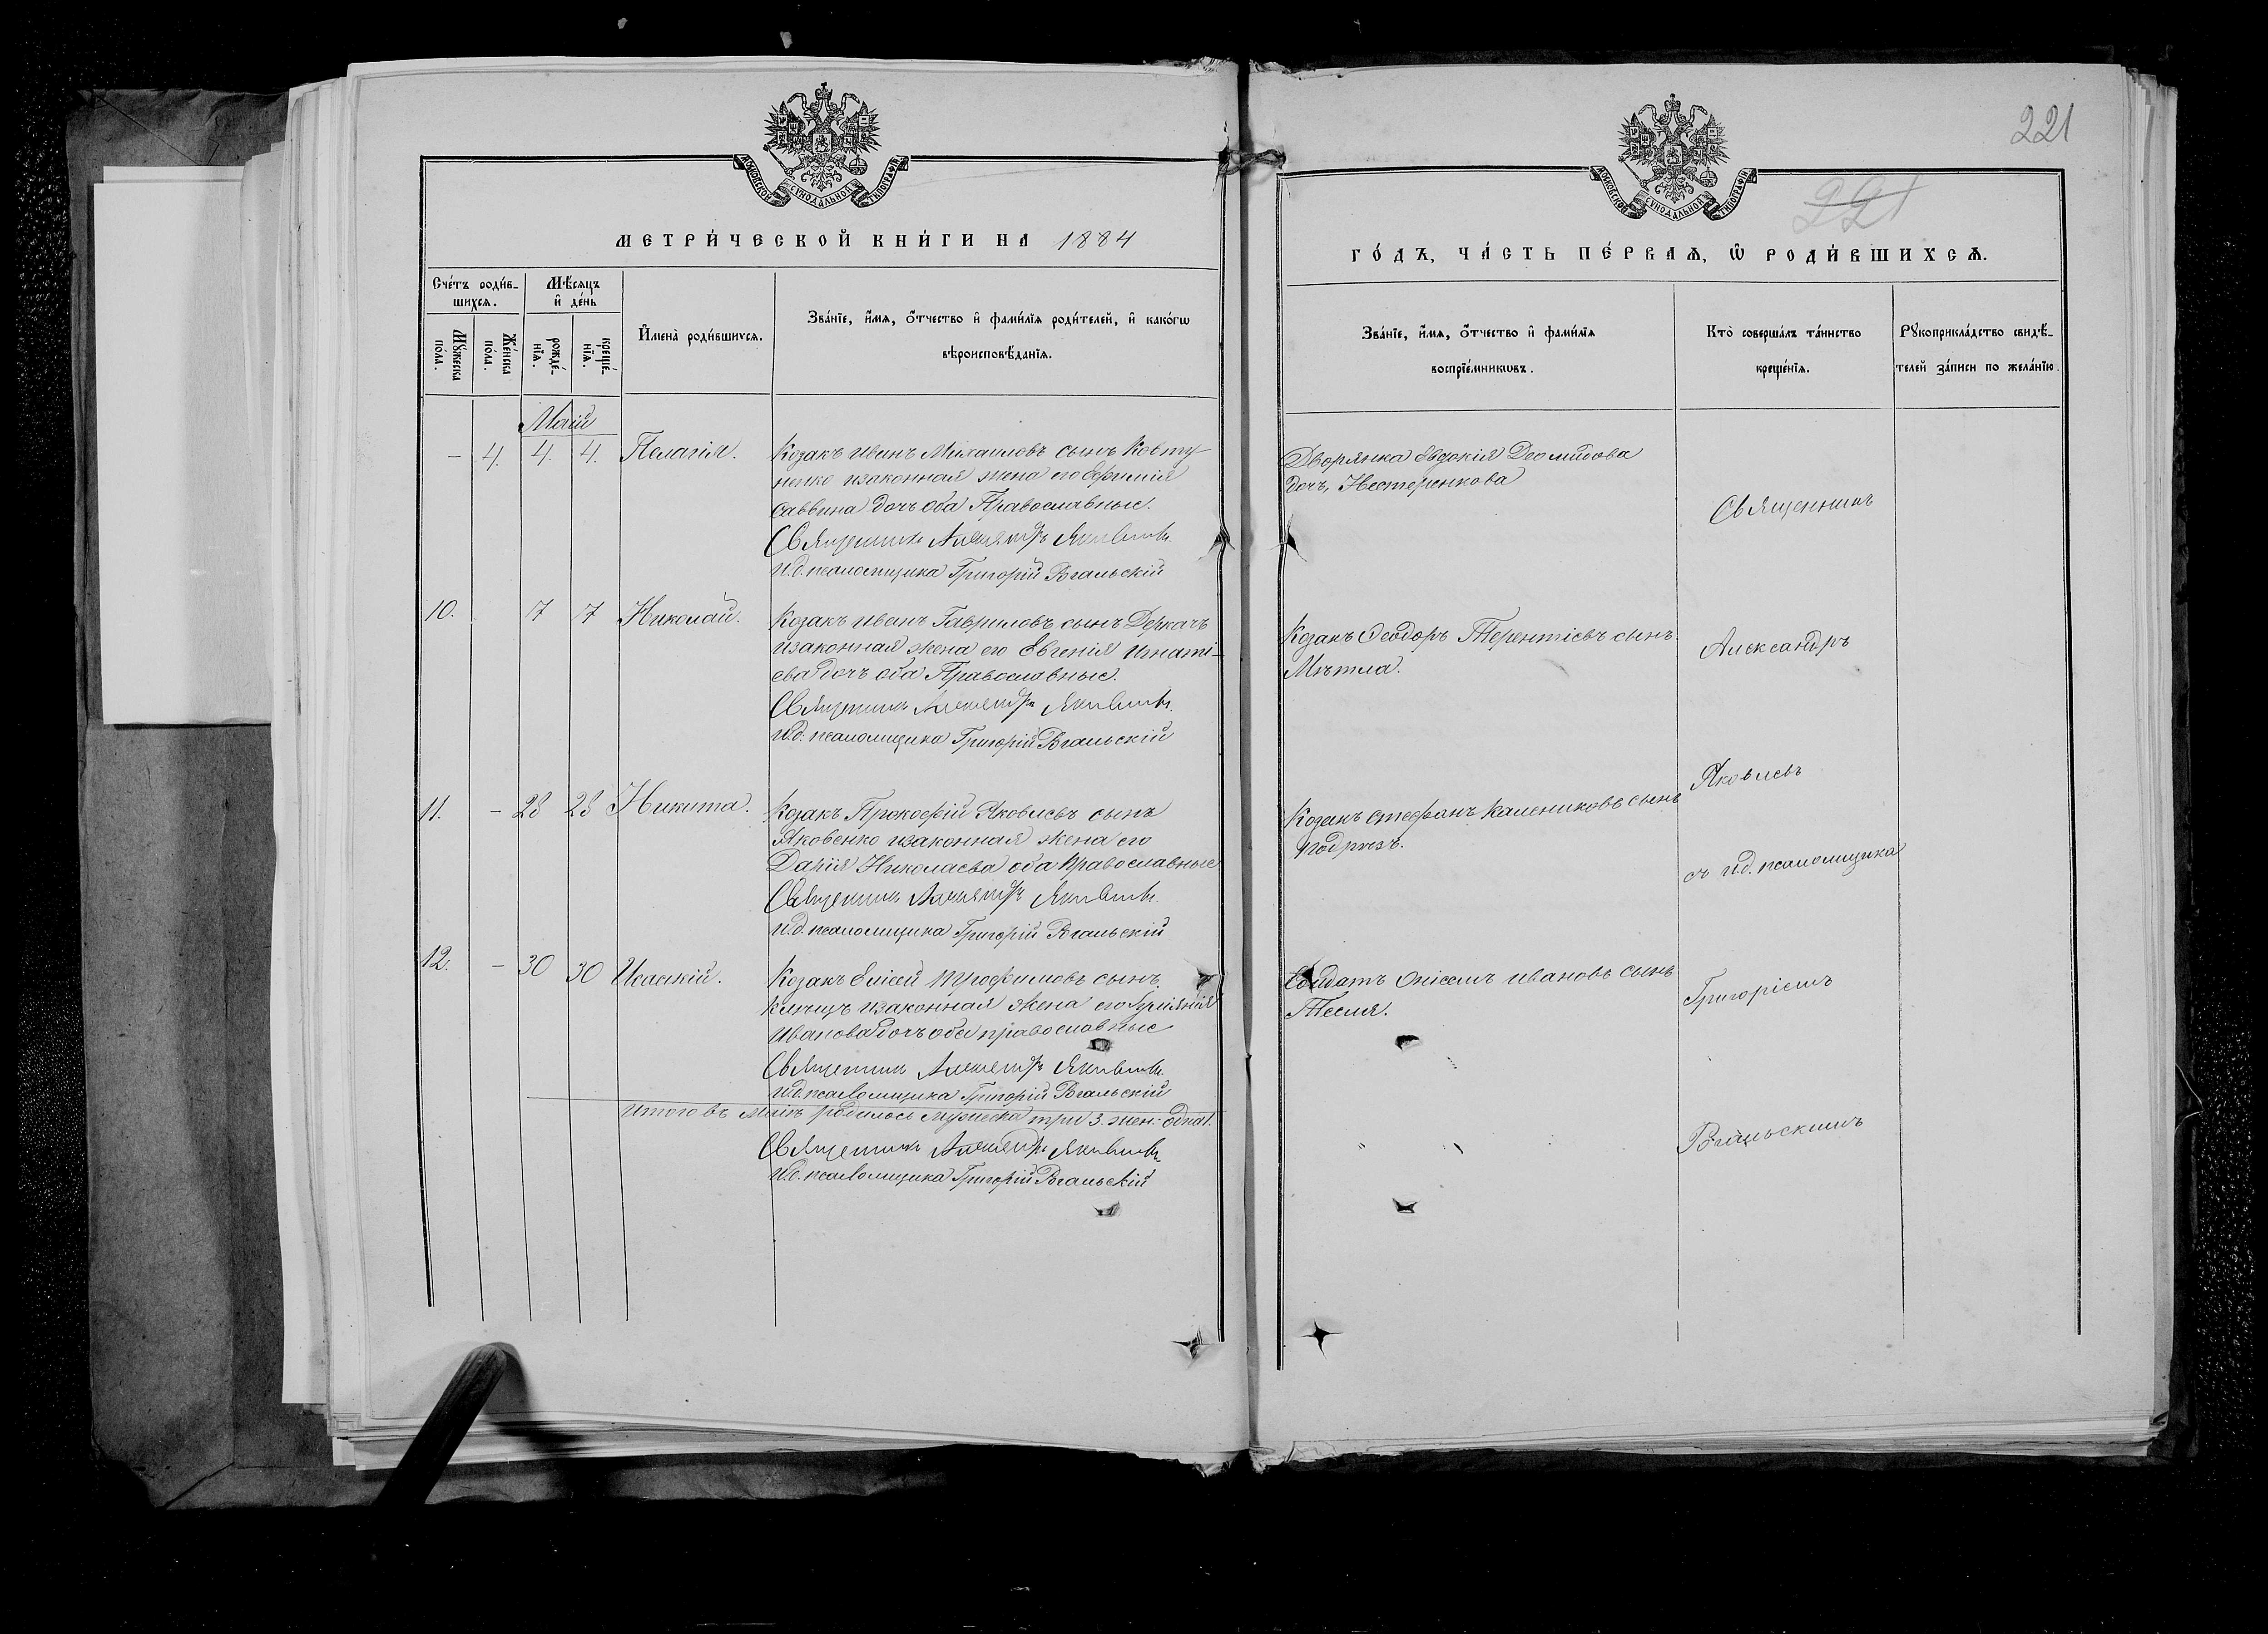 221
221
МОСКОВСКОЙ СѴНОДАЛЬНОЙ ТИПОГРАФІИ
МЕТРИ́ЧЕСКОЙ КНИ́ГИ НА 1884
Сче́тъ роди́в-
шихсѧ.
Мѹжеска по́ла.
Же́нска по́ла.
Мѣ́сѧцъ
и҆ де́нь
рожде́-
нїѧ.
креще́-
нїѧ.
И҆мена̀ роди́вшихсѧ.
Зва́нїе, и҆́мѧ, ѻ҆́тчество и҆ фами́лїѧ роди́телей, и҆ како́гѡ
вѣроисповѣ́данїѧ.
Май
– 4. 4. 4. Пелагія.
Козакъ Иванъ Михаиловъ сынъ Ковту
ненко изаконная жена его Ефимія
Саввина дочь оба Православные.
Священникъ Александръ Яковлевъ.
И.д. псаломщика Григорій
10. 7 7 Николай.
Козакъ Иванъ Гавриловъ сынъ Деркачъ
изаконная жена его Евгенія Игнаті-
ева дочь оба Православные.
Священникъ Александръ Яковлевъ.
И.д. псаломщика Григорій
11. – 28 28 Никита.
Козакъ Прокофій Яковлевъ сынъ
Яковенко изаконная жена его
Дарія Николаева оба Православные
Священникъ Александръ Яковлевъ.
И.д. псаломщика Григорій
12. – 30 30 Исаакій.
Козакъ Елисей Трофимовъ сынъ
изаконная жена его
Иванова дочь оба православные
Священникъ Александръ Яковлевъ.
И.д. псаломщика Григорій
Итого въ Маѣ родилось мужеска три 3. жен: одна 1.
Священникъ Александръ Яковлевъ.
И.д. псаломщика Григорій
МОСКОВСКОЙ СѴНОДАЛЬНОЙ ТИПОГРАФІИ
ГО́ДЪ, ЧА́СТЬ ПЕ́РВАѦ, Ѽ РОДИ́ВШИХСѦ.
Зва́нїе, и҆́мѧ, ѻ҆́тчество и҆ фами́лїѧ
воспрїе́мникѡвъ.
Кто̀ соверша́лъ та́инство
креще́нїѧ.
Рѹкоприкла́дство свидѣ́-
телей за́писи по жела́нїю.
Дворянка Евдокія Деомидова
дочь, Нестеренкова
Козакъ Ѳеодоръ Терентіевъ сынъ
Мѣтла.
Козакъ Стефанъ Калениковъ сынъ
Подрѣзъ.
Солдатъ Онисимъ Ивановъ сынъ
Тесля.
Священникъ
Александръ
Яковлевъ
съ и.д. псаломщика
Григоріемъ